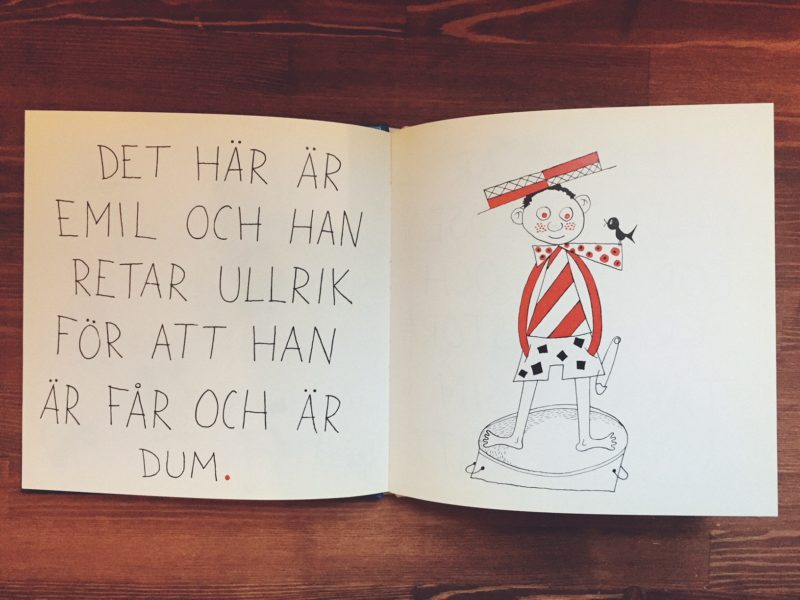 DET HÄR ÄR
EMIL OCH HAN
RETAR ULLRIK
FÖR ATT HAN
ÄR FÅR OCH ÄR
DUM.